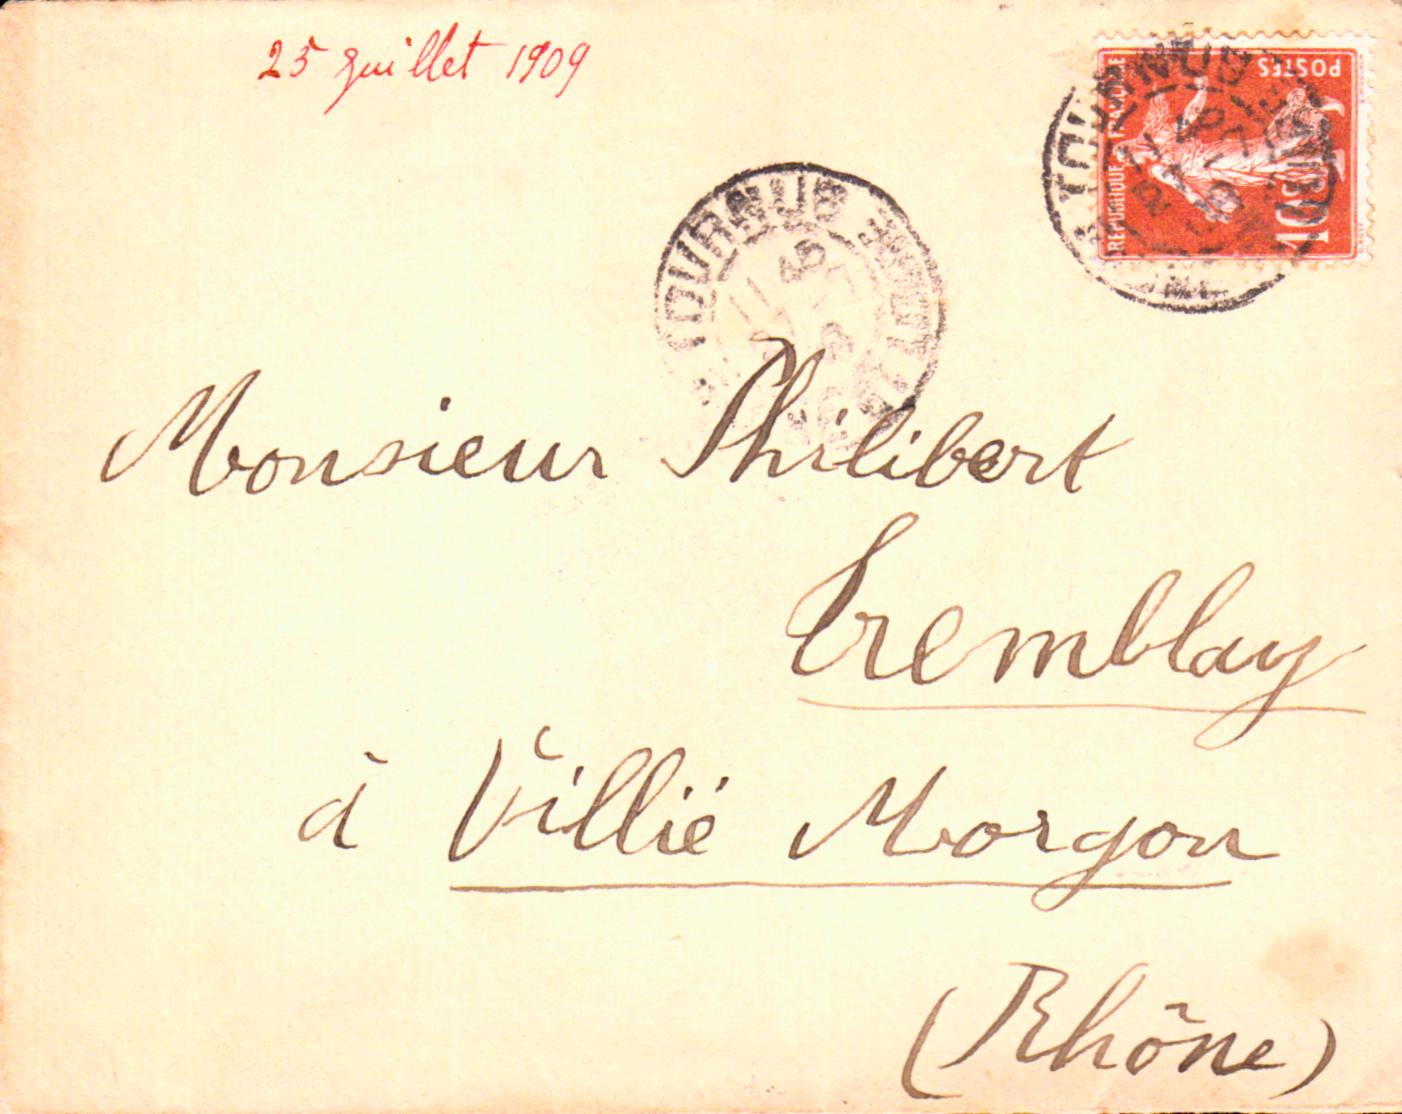 25 juillet 1909
POSTES
REPUBLIQUE FRANÇAISE
10
TOURNUS
TOURNUS
Monsieur Philibert
Tremblay
à Villié Morgon
(Rhône)